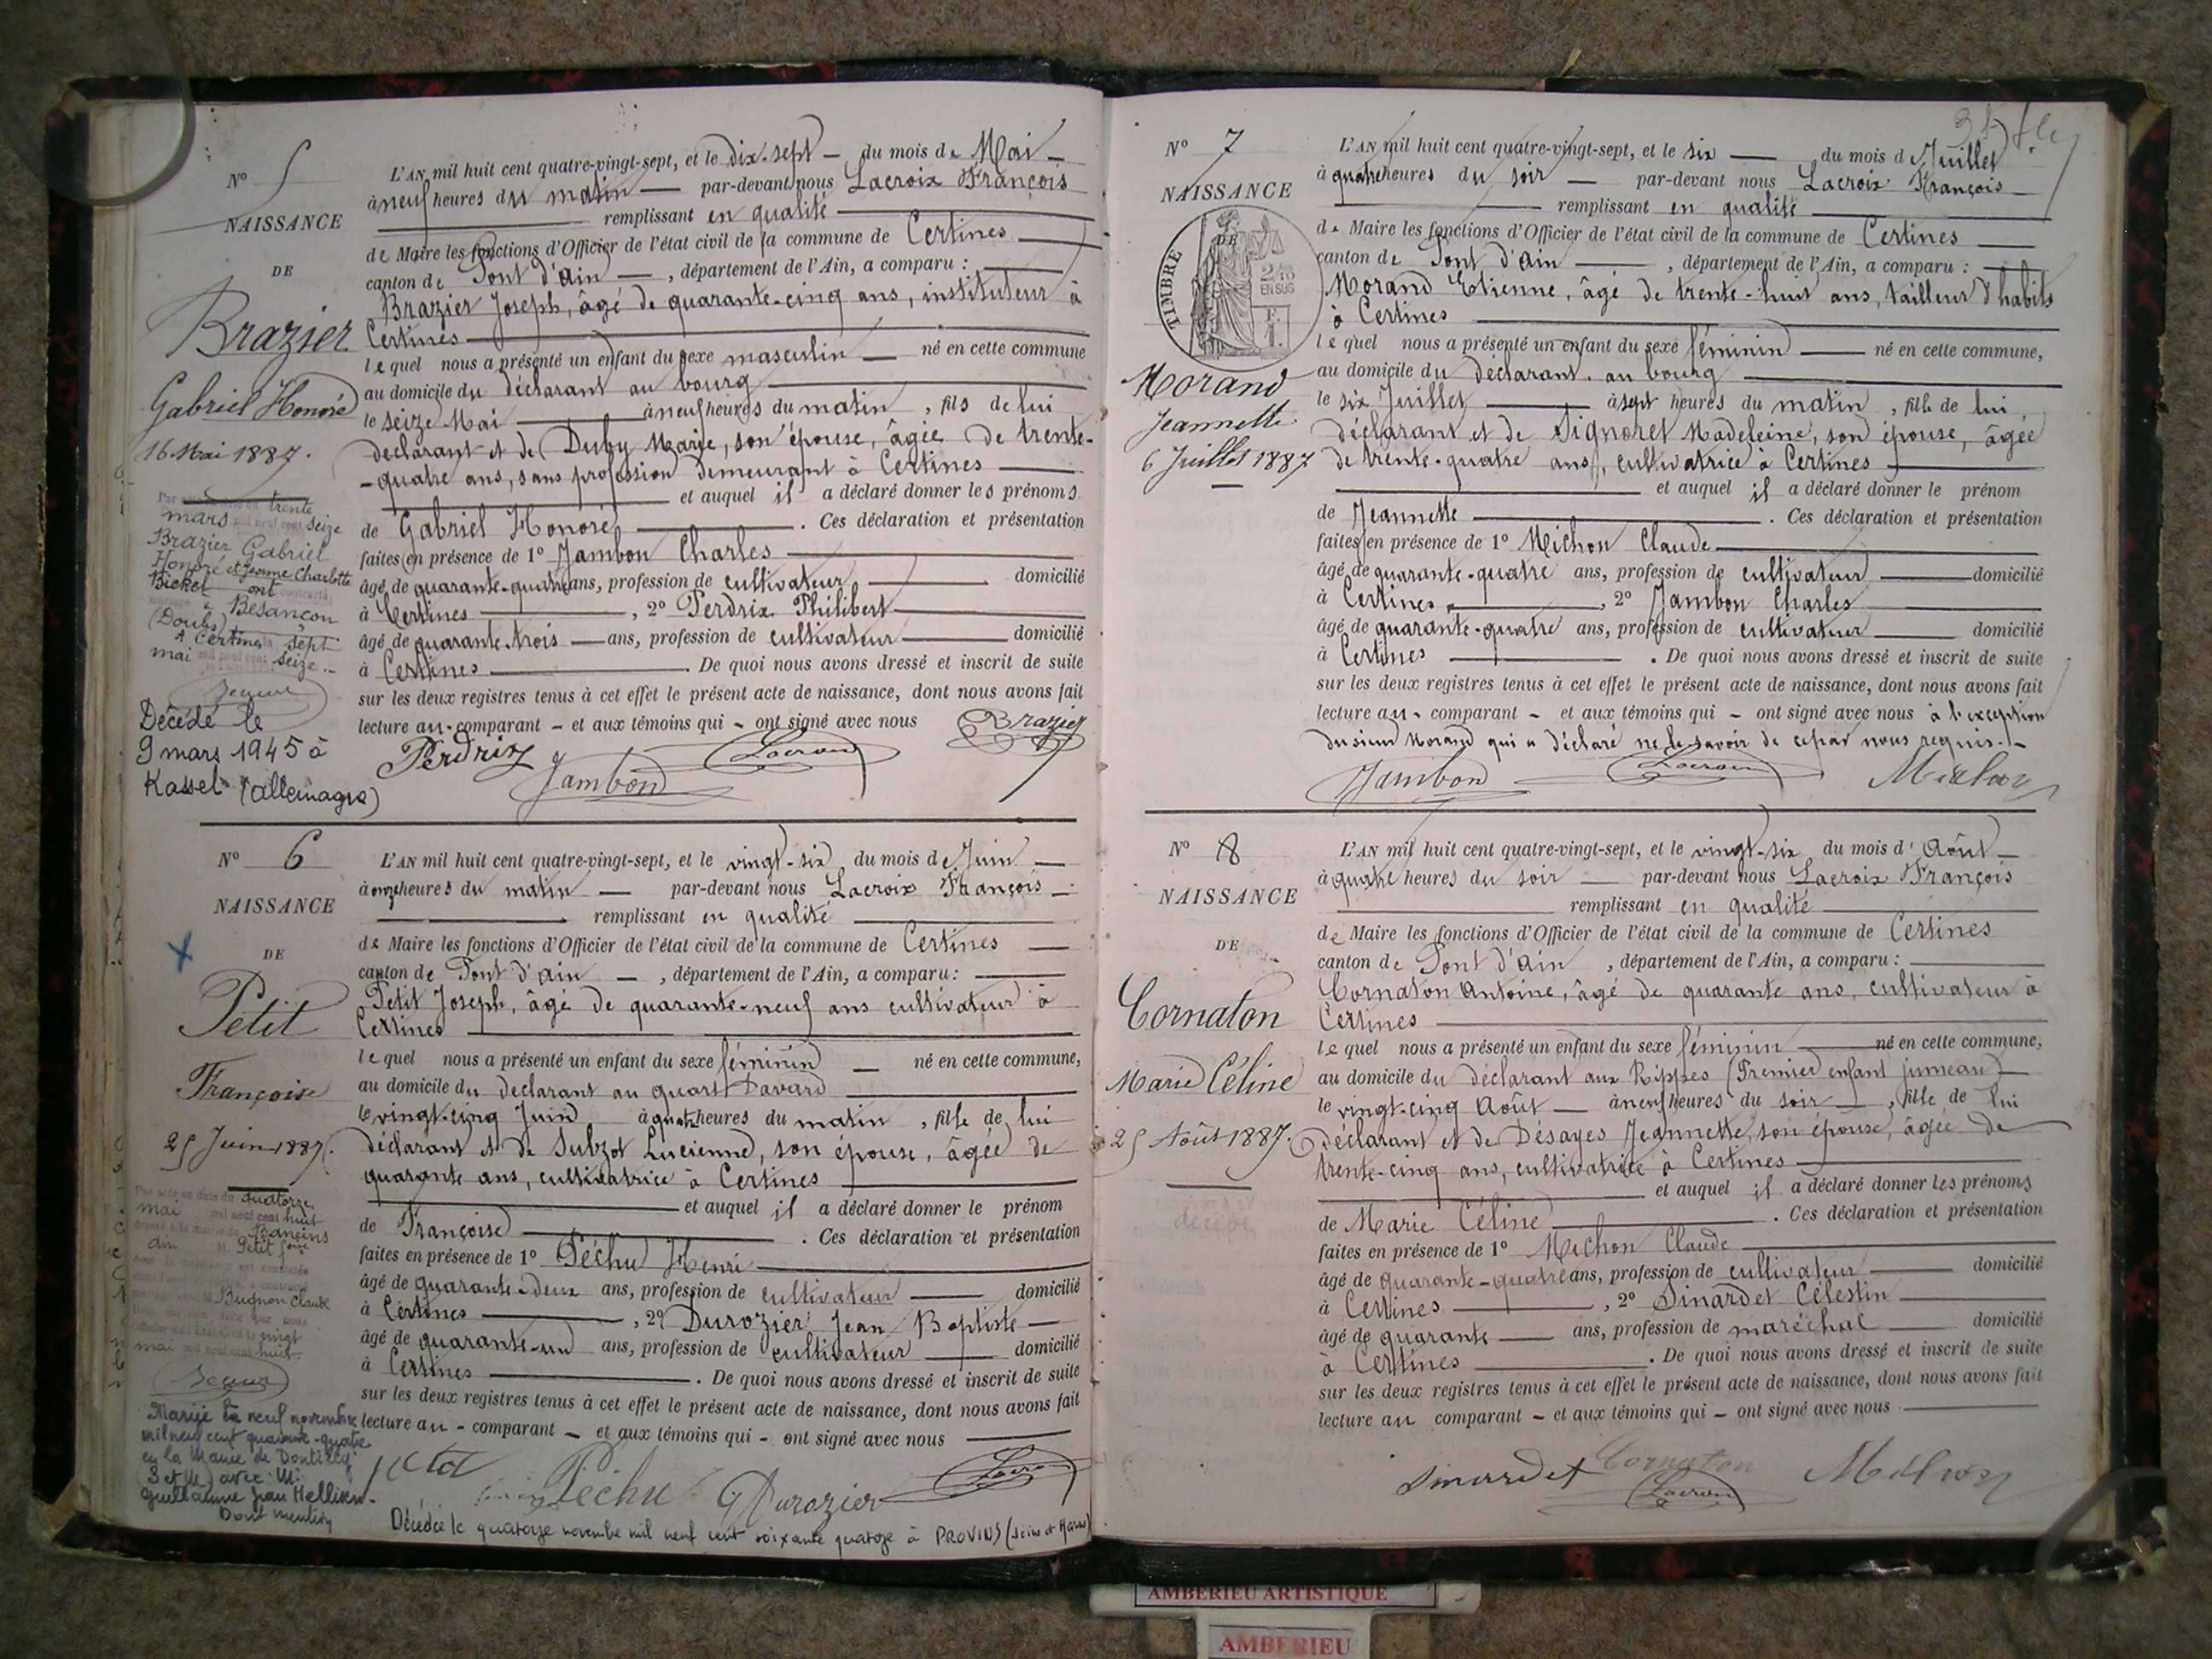 N° 5
NAISSANCE
DE
Brazier
Gabriel Honoré
16 Mai 1887.
trente
mars seize
Brazier Gabriel
Honoré et Jeanne Charlotte
Bickel ont
à Besançon
(Doubs)
A Certines sept
mai seize
Décédé le
9 mars 1945 à
Kassel (allemagne)
L'AN mil huit cent quatre-vingt-sept, et le dix-sept du mois de Mai
à neuf heures du matin par-devant nous Lacroix François
remplissant en qualité
de Maire les fonctions d'Officier de l'état civil de la commune de Certines
canton de Pont d'ain , département de l'Ain, a comparu :
Brazier Joseph, âgé de quarante-cinq ans, instituteur à
Certines
lequel nous a présenté un enfant du sexe masculin né en cette commune
au domicile du déclarant au bourg
le seize Mai à neuf heures du matin , fils de lui
déclarant et de Duby Marie, son épouse, âgée de trente-
-quatre ans, sans profession demeurant à Certines
et auquel il a déclaré donner les prénoms
de Gabriel Honoré . Ces déclaration et présentation
faites en présence de 1° Jambon Charles
âgé de quarante-quatre ans, profession de cultivateur domicilié
à Certines , 2° Perdrix Philibert
âgé de quarante-trois ans, profession de cultivateur domicilié
à Certines . De quoi nous avons dressé et inscrit de suite
sur les deux registres tenus à cet effet le présent acte de naissance, dont nous avons fait
lecture au comparant et aux témoins qui ont signé avec nous Brazier
Perdrix Jambon Lacroix
N° 6
NAISSANCE
DE
Petit
Françoise
25 Juin 1887.
quatorze
mai mil neuf cent huit
Bancins
ain Petit foise
Bugnon Claude
vingt
mai mil neuf cent huit
Mariée le neuf novembre
mil neuf cent quarante-quatre
en la Mairie de Dontilly
(S et M) avec M.
Guillaume Jean
Dont mention
L'AN mil huit cent quatre-vingt-sept, et le vingt-six du mois de Juin
à onze heures du matin par-devant nous Lacroix François
remplissant en qualité
de Maire les fonctions d'Officier de l'état civil de la commune de Certines
canton de Pont d'ain , département de l'Ain, a comparu :
Petit Joseph, âgé de quarante-neuf ans cultivateur à
Certines
lequel nous a présenté un enfant du sexe féminin né en cette commune,
au domicile du déclarant au quart Davard
le vingt-cinq Juin à quatre heures du matin , fille de lui
déclarant et de Subzot Lucienne, son épouse, âgée de
quarante ans, cultivatrice à Certines
et auquel il a déclaré donner le prénom
de Françoise . Ces déclaration et présentation
faites en présence de 1° Péchu Henri
âgé de quarante-deux ans, profession de cultivateur domicilié
à Certines , 2° Durozier Jean Baptiste
âgé de quarante-un ans, profession de cultivateur domicilié
à Certines . De quoi nous avons dressé et inscrit de suite
sur les deux registres tenus à cet effet le présent acte de naissance, dont nous avons fait
lecture au comparant et aux témoins qui ont signé avec nous
Péchu Durozier Lacroix
Décédée le quatorze novembre mil neuf cent soixante quatorze à PROVINS (Seine et Marne)
N° 7
NAISSANCE
DE
TIMBRE
2/10
EN SUS
Morand
Jeannette
6 Juillet 1887
L'AN mil huit cent quatre-vingt-sept, et le six du mois d Juillet
à quatre heures du soir par-devant nous Lacroix François
remplissant en qualité
de Maire les fonctions d'Officier de l'état civil de la commune de Certines
canton de Pont d'ain , département de l'Ain, a comparu :
Morand Etienne, âgé de trente-huit ans, tailleur d'habits
à Certines
lequel nous a présenté un enfant du sexe féminin né en cette commune,
au domicile du déclarant au bourg
le six Juillet à sept heures du matin , fille de lui,
déclarant et de Signoret Madeleine, son épouse, âgée
de trente-quatre ans, cultivatrice à Certines
et auquel il a déclaré donner le prénom
de Jeannette . Ces déclaration et présentation
faites en présence de 1° Michon Claude
âgé de quarante-quatre ans, profession de cultivateur domicilié
à Certines , 2° Jambon Charles
âgé de quarante-quatre ans, profession de cultivateur domicilié
à Certines . De quoi nous avons dressé et inscrit de suite
sur les deux registres tenus à cet effet le présent acte de naissance, dont nous avons fait
lecture au comparant et aux témoins qui ont signé avec nous à l'exception
du sieur Morand qui a déclaré ne le savoir de ce par nous requis.
Jambon Lacroix Michon
N° 8
NAISSANCE
DE
Cornaton
Marie Céline
25 Août 1887.
L'AN mil huit cent quatre-vingt-sept, et le vingt-six du mois d'Août
à quatre heures du soir par-devant nous Lacroix François
remplissant en qualité
de Maire les fonctions d'Officier de l'état civil de la commune de Certines
canton de Pont d'ain , département de l'Ain, a comparu :
Cornaton Antoine, âgé de quarante ans, cultivateur à
Certines
lequel nous a présenté un enfant du sexe féminin né en cette commune,
au domicile du déclarant aux Rippes (Premier enfant jumeau)
le vingt-cinq Août à neuf heures du soir , fille de lui
déclarant et de Désayes Jeannette, son épouse, âgée de
trente-cinq ans, cultivatrice à Certines
et auquel il a déclaré donner les prénoms
de Marie Céline . Ces déclaration et présentation
faites en présence de 1° Michon Claude
âgé de quarante-quatre ans, profession de cultivateur domicilié
à Certines , 2° Sinardet Célestin
âgé de quarante ans, profession de maréchal domicilié
à Certines . De quoi nous avons dressé et inscrit de suite
sur les deux registres tenus à cet effet le présent acte de naissance, dont nous avons fait
lecture au comparant et aux témoins qui ont signé avec nous
Sinardet Cornaton Lacroix Michon
AMBERIEU ARTISTIQUE
AMBERIEU